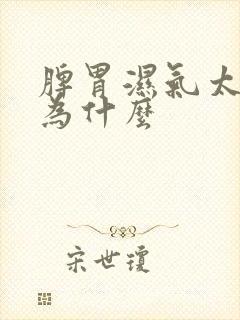 脾胃濕氣太
為什麼
宋世瓊